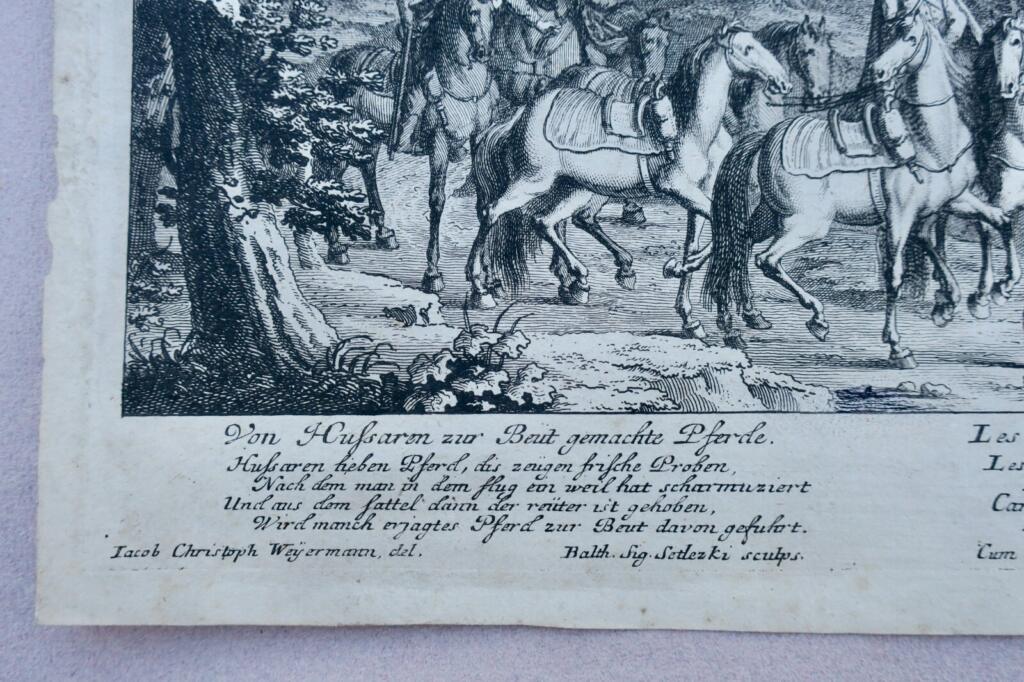 Von Hussaren zur Beut gemachte Pferde.
Hussaren lieben Pferd, dis zeügen frische Proben,
Nach dem man in dem flug ein weil hat scharmuziert
Und aus dem sattel dann der reüter ist gehoben,
Wird manch erjagtes Pferd zur Beut davon gefuhrt.
Iacob Christoph Weÿermann, del. Balth. Sig. Setlezki sculps.
Les
Les
Car
Cum